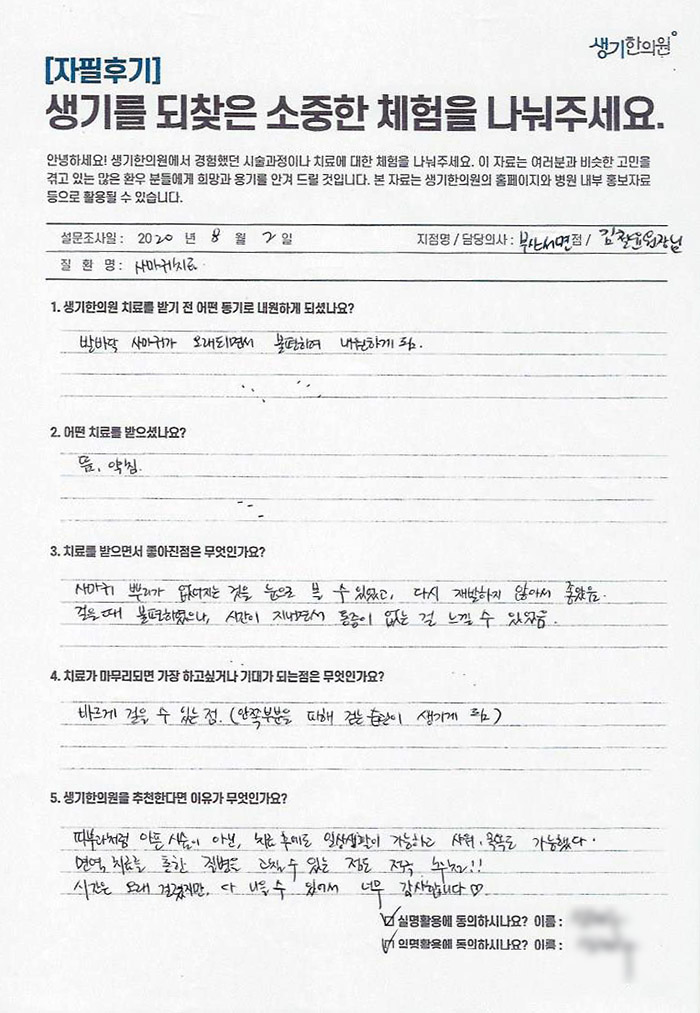 생기한의원
[자필후기]
생기를 되찾은 소중한 체험을 나눠주세요.
안녕하세요! 생기한의원에서 경험했던 시술과정이나 치료에 대한 체험을 나눠주세요. 이 자료는 여러분과 비슷한 고민을
겪고 있는 많은 환우 분들에게 희망과 용기를 안겨 드릴 것입니다. 본 자료는 생기한의원의 홈페이지와 병원 내부 홍보자료
등으로 활용될 수 있습니다.
설문조사일 : 2020 년 8 월 2 일 지점명 / 담당의사 : 부산서면점 / 김철윤원장님
질 환 명 : 사마귀치료
1. 생기한의원 치료를 받기 전 어떤 동기로 내원하게 되셨나요?
발바닥 사마귀가 오래되면서 불편하여 내원하게 됨.
2. 어떤 치료를 받으셨나요?
뜸, 약침.
3. 치료를 받으면서 좋아진점은 무엇인가요?
사마귀 뿌리가 없어지는 것을 눈으로 볼 수 있었고, 다시 재발하지 않아서 좋았음.
걸을 때 불편하였으나, 시간이 지내면서 통증이 없는 걸 느낄 수 있었음.
4. 치료가 마무리되면 가장 하고싶거나 기대가 되는점은 무엇인가요?
바르게 걸을 수 있는 점. (안쪽부분을 피해 걷는 습관이 생기게 됨)
5. 생기한의원을 추천한다면 이유가 무엇인가요?
피부과처럼 아픈 시술이 아닌, 치료 후에도 일상생활이 가능하고 샤워, 목욕도 가능했다.
면역 치료를 통한 질병을 고칠 수 있는 점도 적극 추천!!
시간은 오래 걸렸지만, 다 나을 수 있어서 너무 감사합니다♡
☑ 실명활용에 동의하시나요? 이름 :
☑ 익명활용에 동의하시나요? 이름 :